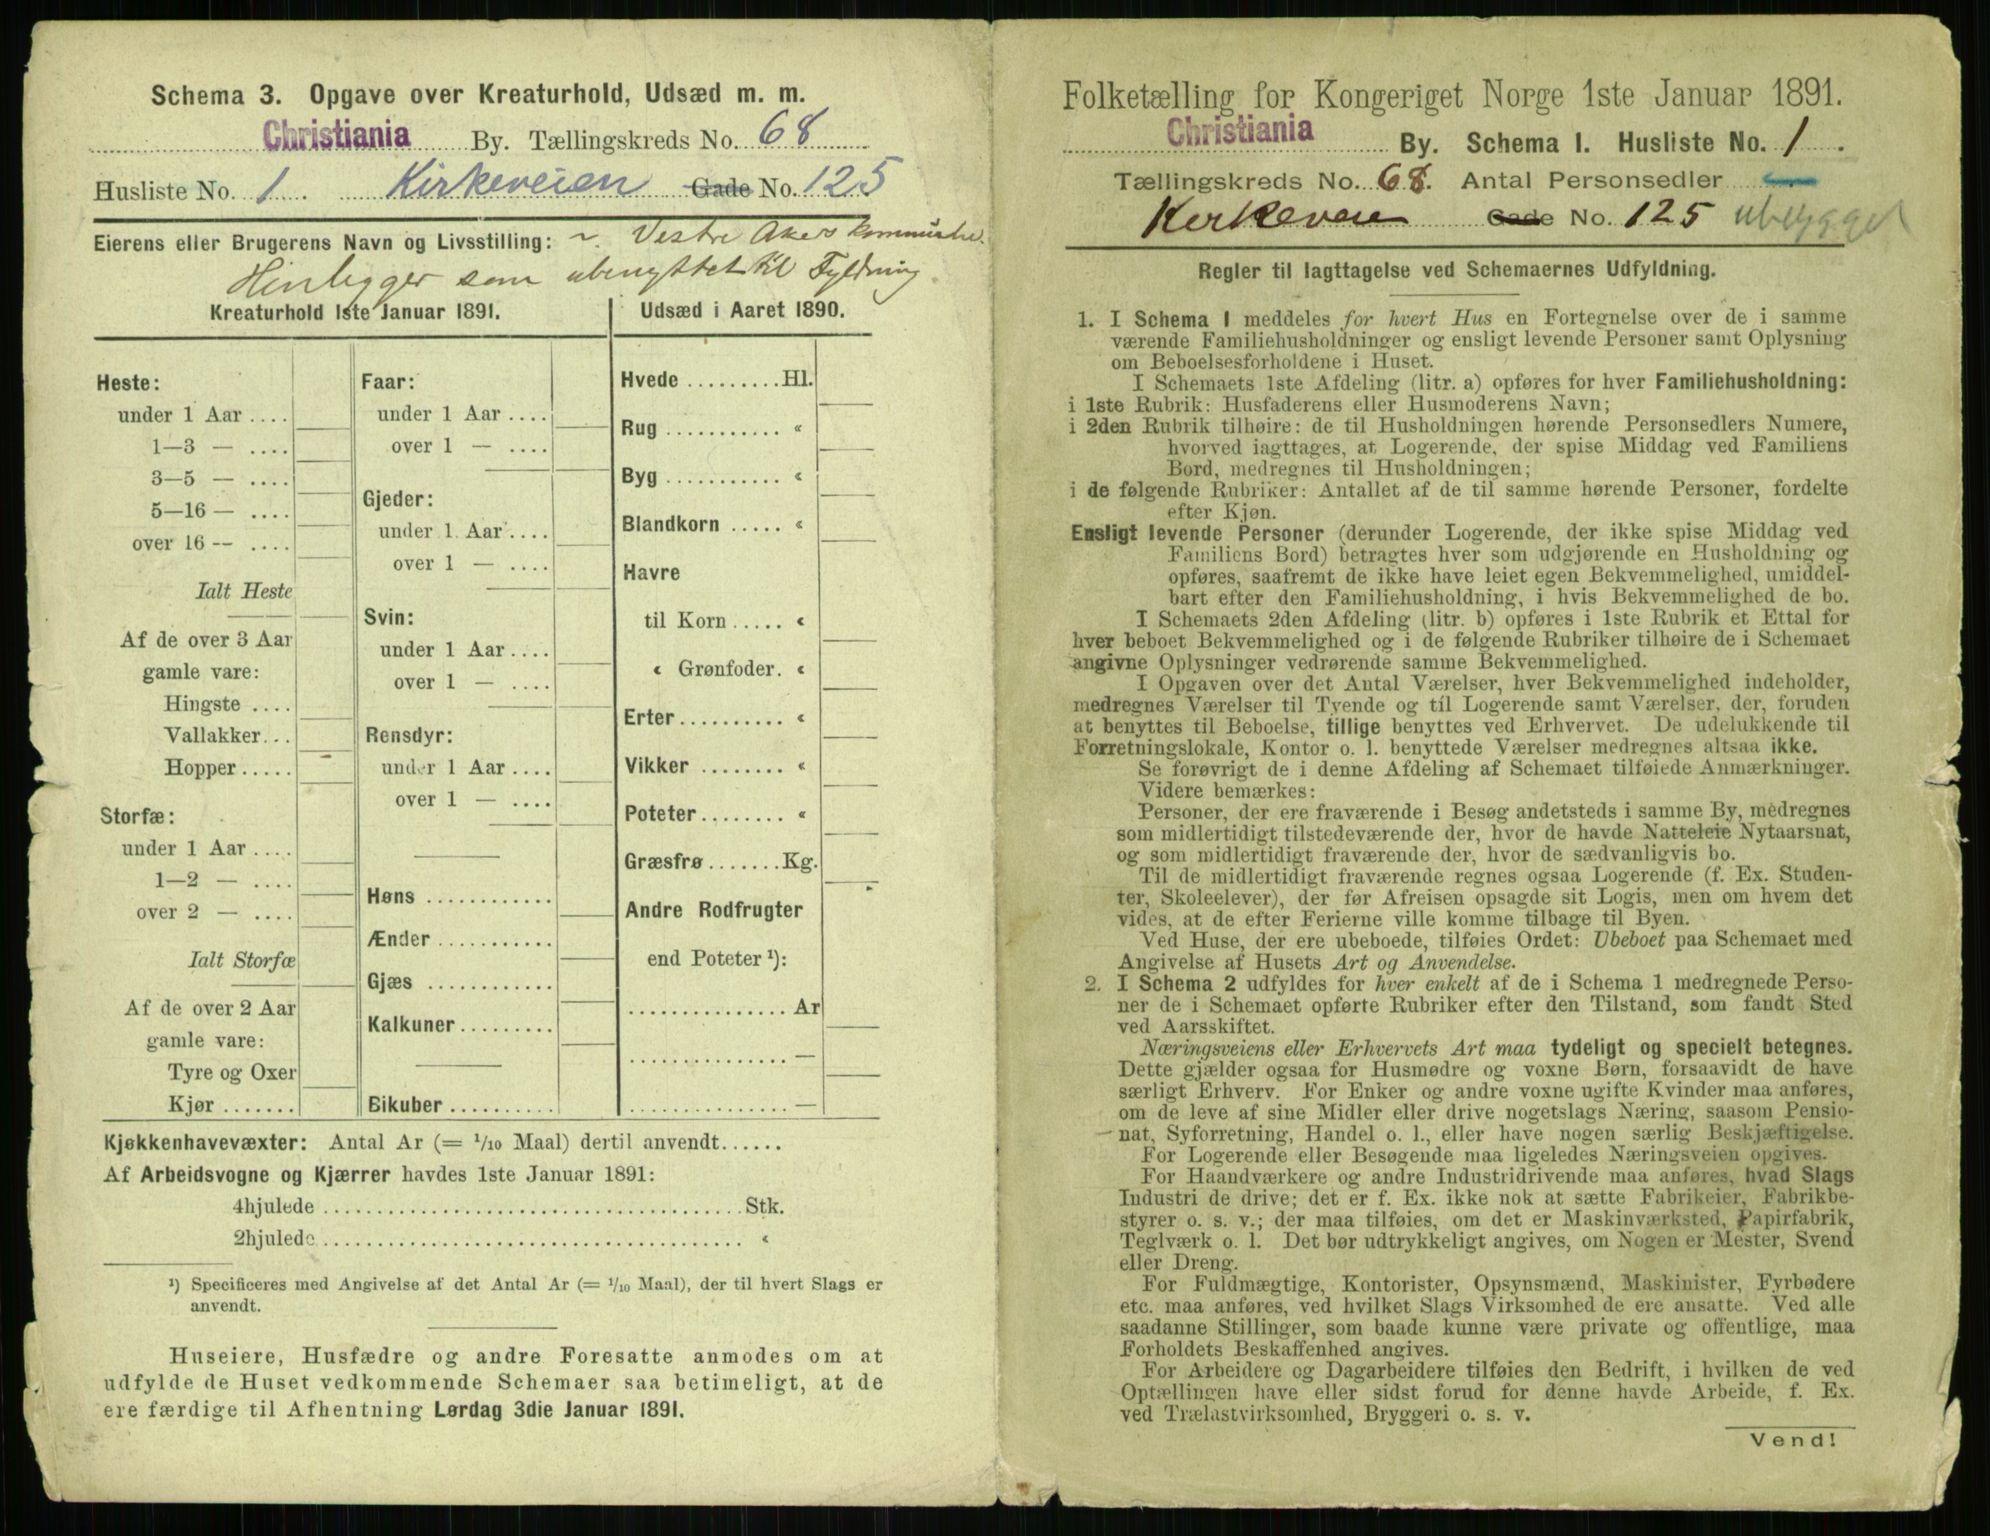 Schema 3. Opgave over Kreaturhold, Udsæd m. m.
Christiania By. Tællingskreds No. 68
Husliste No. 1 Kirkeveien Gade No. 125
Eierens eller Brugerens Navn og Livsstilling: Vestre Akers Kommune
Henligger som ubenyttet til Fyldning
Kreaturhold 1ste Januar 1891.
Heste:
under 1 Aar ....
1—3 — ....
3—5 — ....
5—16 — ....
over 16 -- ....
Ialt Heste
Af de over 3 Aar
gamle vare:
Hingste ....
Vallakker...
Hopper.....
Storfæ:
under 1 Aar ....
1—2 — ....
over 2 — ....
Ialt Storfæ
Af de over 2 Aar
gamle vare:
Tyre og Oxer
Kjør .......
Faar:
under 1 Aar ....
over 1 — ....
Gjeder:
under 1 Aar ....
over 1 — ....
Svin:
under 1 Aar ....
over 1 — ....
Rensdyr:
under 1 Aar ....
over 1 — ....
Høns ............
Ænder ...........
Gjæs ............
Kalkuner.........
Bikuber ..........
Udsæd i Aaret 1890.
Hvede .........Hl.
Rug ........... «
Byg ........... «
Blandkorn ..... «
Havre
til Korn ..... «
« Grønfoder. «
Erter.......... «
Vikker ........ «
Poteter........ «
Græsfrø .......Kg.
Andre Rodfrugter
end Poteter ¹):
............... Ar
............... —
............... —
Kjøkkenhavevæxter: Antal Ar (= 1/10 Maal) dertil anvendt......
Af Arbeidsvogne og Kjærrer havdes 1ste Januar 1891:
4hjulede ....................................... Stk.
2hjulede....................................... «
¹) Specificeres med Angivelse af det Antal Ar (= 1/10 Maal), der til hvert Slags er
anvendt.
Huseiere, Husfædre og andre Foresatte anmodes om at
udfylde de Huset vedkommende Schemaer saa betimeligt, at de
ere færdige til Afhentning Lørdag 3die Januar 1891.
Folketælling for Kongeriget Norge 1ste Januar 1891.
Christiania By. Schema I. Husliste No. 1.
Tællingskreds No. 68. Antal Personsedler —
Kirkeveie Gade No. 125 ubygget
Regler til Iagttagelse ved Schemaernes Udfyldning.
1. I Schema I meddeles for hvert Hus en Fortegnelse over de i samme
værende Familiehusholdninger og ensligt levende Personer samt Oplysning
om Beboelsesforholdene i Huset.
I Schemaets 1ste Afdeling (litr. a) opføres for hver Familiehusholdning:
i 1ste Rubrik: Husfaderens eller Husmoderens Navn;
i 2den Rubrik tilhøire: de til Husholdningen hørende Personsedlers Numere,
hvorved iagttages, at Logerende, der spise Middag ved Familiens
Bord, medregnes til Husholdningen;
i de følgende Rubriker: Antallet af de til samme hørende Personer, fordelte
efter Kjøn.
Ensligt levende Personer (derunder Logerende, der ikke spise Middag ved
Familiens Bord) betragtes hver som udgjørende en Husholdning og
opføres, saafremt de ikke have leiet egen Bekvemmelighed, umiddel-
bart efter den Familiehusholdning, i hvis Bekvemmelighed de bo.
I Schemaets 2den Afdeling (litr. b) opføres i 1ste Rubrik et Ettal for
hver beboet Bekvemmelighed og i de følgende Rubriker tilhøire de i Schemaet
angivne Oplysninger vedrørende samme Bekvemmelighed.
I Opgaven over det Antal Værelser, hver Bekvemmelighed indeholder,
medregnes Værelser til Tyende og til Logerende samt Værelser, der, foruden
at benyttes til Beboelse, tillige benyttes ved Erhvervet. De udelukkende til
Forretningslokale, Kontor o. l. benyttede Værelser medregnes altsaa ikke.
Se forøvrigt de i denne Afdeling af Schemaet tilføiede Anmærkninger.
Videre bemærkes:
Personer, der ere fraværende i Besøg andetsteds i samme By, medregnes
som midlertidigt tilstedeværende der, hvor de havde Natteleie Nytaarsnat,
og som midlertidigt fraværende der, hvor de sædvanligvis bo.
Til de midlertidigt fraværende regnes ogsaa Logerende (f. Ex. Studen-
ter, Skoleelever), der før Afreisen opsagde sit Logis, men om hvem det
vides, at de efter Ferierne ville komme tilbage til Byen.
Ved Huse, der ere ubeboede, tilføies Ordet: Ubeboet paa Schemaet med
Angivelse af Husets Art og Anvendelse.
2. I Schema 2 udfyldes for hver enkelt af de i Schema 1 medregnede Perso-
ner de i Schemaet opførte Rubriker efter den Tilstand, som fandt Sted
ved Aarsskiftet.
Næringsveiens eller Erhvervets Art maa tydeligt og specielt betegnes.
Dette gjælder ogsaa for Husmødre og voxne Børn, forsaavidt de have
særligt Erhverv. For Enker og andre voxne ugifte Kvinder maa anføres,
om de leve af sine Midler eller drive nogetslags Næring, saasom Pensio-
nat, Syforretning, Handel o. l., eller have nogen særlig Beskjæftigelse.
For Logerende eller Besøgende maa ligeledes Næringsveien opgives.
For Haandværkere og andre Industridrivende maa anføres, hvad Slags
Industri de drive; det er f. Ex. ikke nok at sætte Fabrikeier, Fabrikbe-
styrer o. s. v.; der maa tilføies, om det er Maskinværksted, Papirfabrik,
Teglværk o. l. Det bør udtrykkeligt angives, om Nogen er Mester, Svend
eller Dreng.
For Fuldmægtige, Kontorister, Opsynsmænd, Maskinister, Fyrbødere
etc. maa anføres, ved hvilket Slags Virksomhed de ere ansatte. Ved alle
saadanne Stillinger, som baade kunne være private og offentlige, maa
Forholdets Beskaffenhed angives.
For Arbeidere og Dagarbeidere tilføies den Bedrift, i hvilken de ved
Optællingen have eller sidst forud for denne havde Arbeide, f. Ex.
ved Trælastvirksomhed, Bryggeri o. s. v.
Vend!